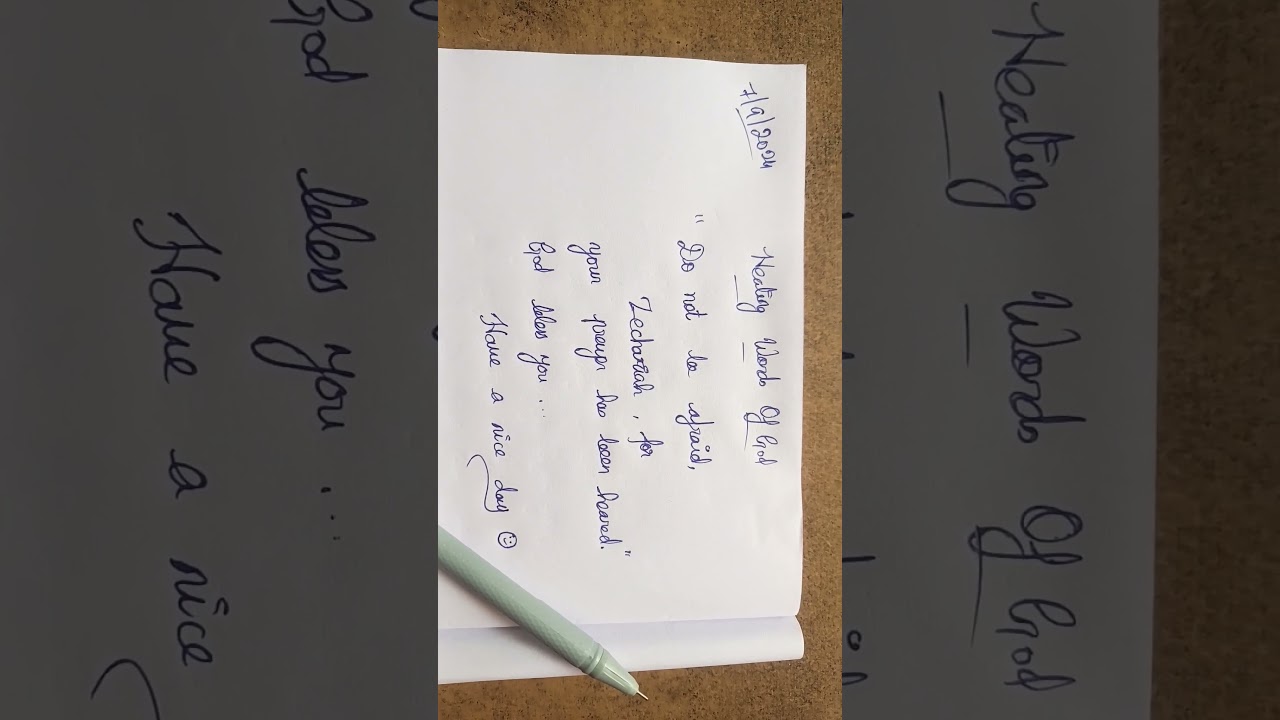 7/9/2024
Healing Words Of God
" Do not be afraid,
Zechariah, for
your prayer has been heared."
God bless you ...
Have a nice day ☺